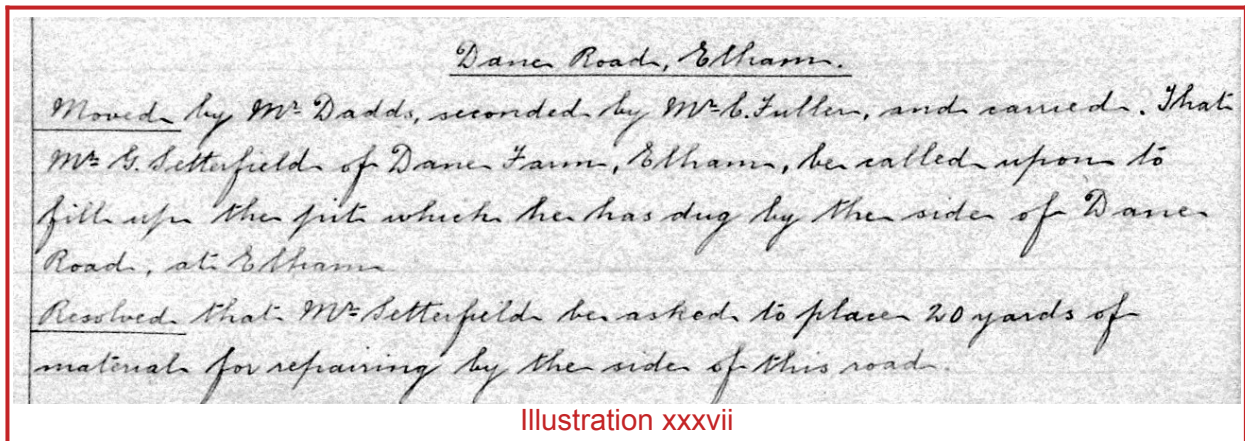 Dane Road, Elham.
Moved by Mr Dadds, seconded by Mr C. Fuller, and carried. That
Mr G. Setterfield of Dane Farm, Elham, be called upon to
fill up the pit which he has dug by the side of Dane
Road, at Elham
Resolved that Mr Setterfield be asked to place 20 yards of
material for repairing by the side of this road.
Illustration xxxvii